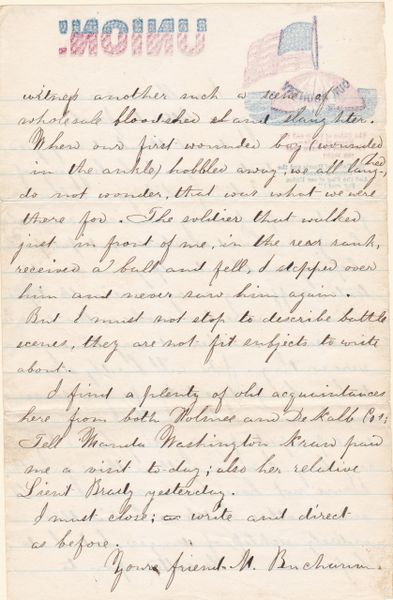 UNION.
OUR COUNTRY
witness another such a scene of
wholesale bloodshed and slaughter.
When our first wounded boy (wounded
in the ankle) hobbled away, we all laughed
do not wonder, that was what we were
there for. The soldier that walked
just in front of me, in the rear rank,
received a ball and fell, I stepped over
him and never saw him again.
But I must not stop to describe battle
scenes, they are not fit subjects to write
about.
I find a plenty of old acquaintances
here from both Holmes and De Kalb Cos;
Tell Manda Washington paid
me a visit to-day; also her relative
Lieut Brady yesterday.
I must close; write and direct
as before.
Your friend M.